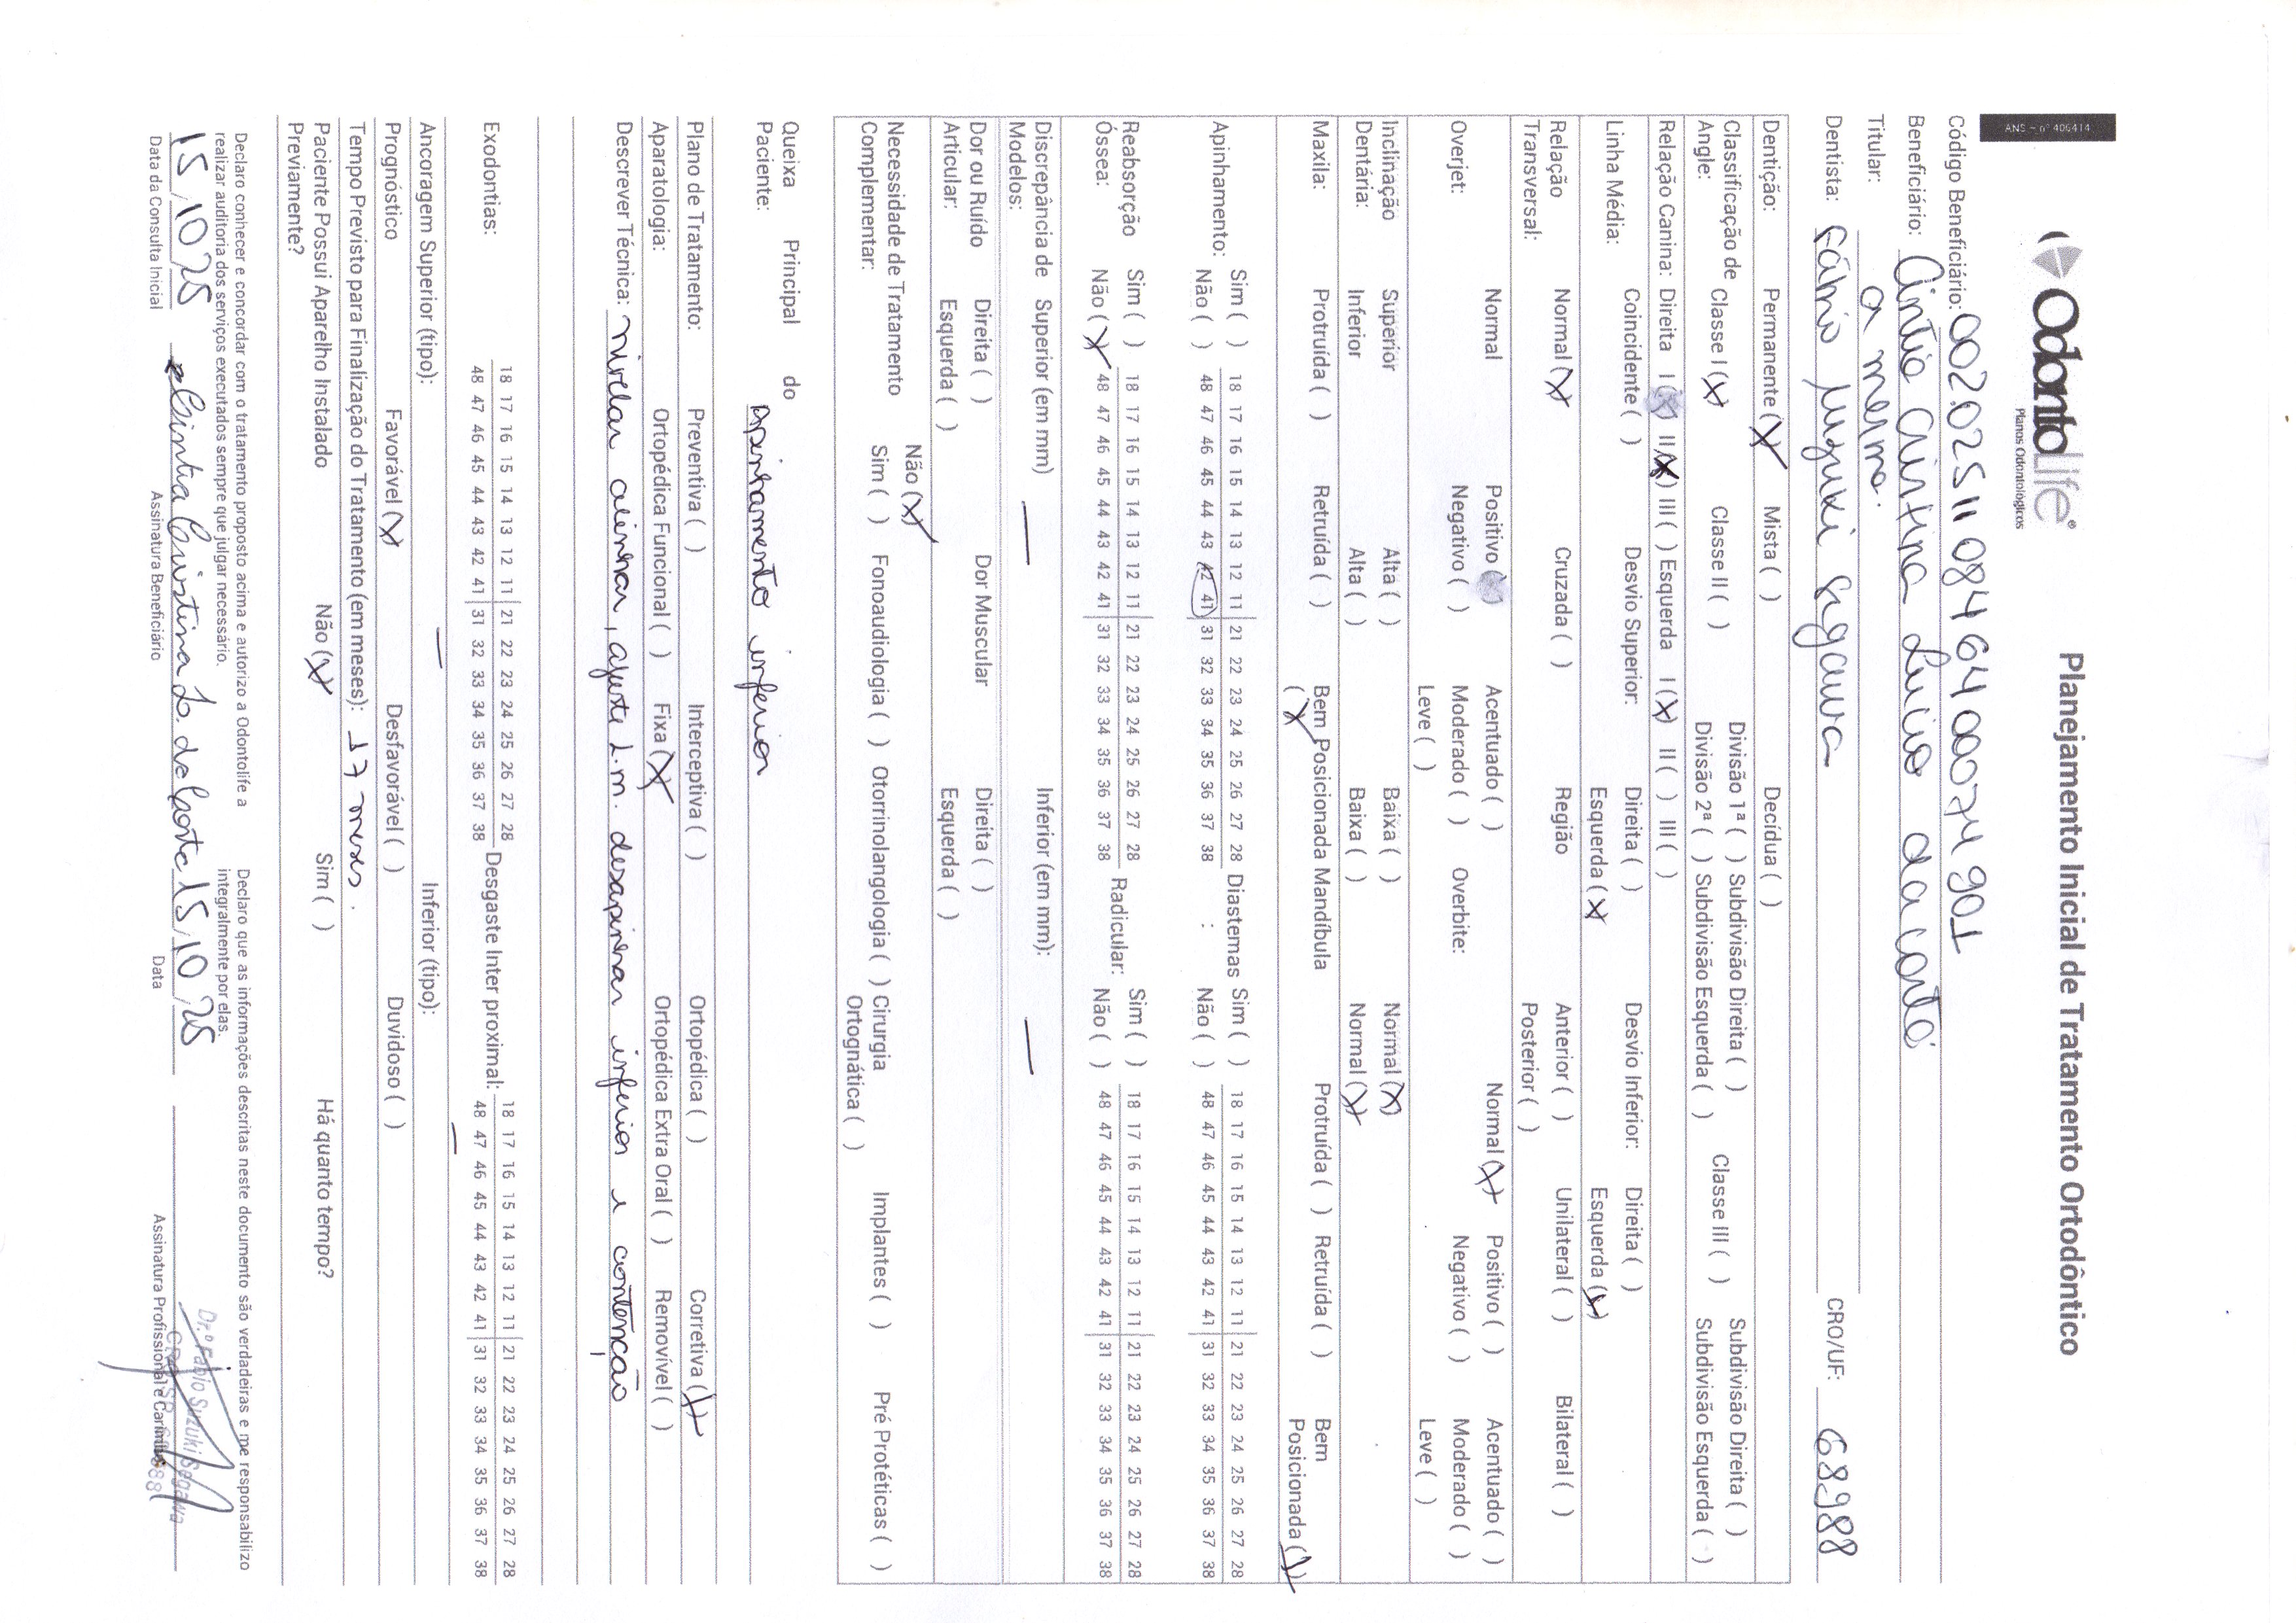 OdontoLife®
Planos Odontológicos
Planejamento Inicial de Tratamento Ortodôntico
ANS - nº 406414
Código Beneficiário: 002.025110846400074901
Beneficiário: Cintia Cristina Lucio da Costa
Titular: a mesma.
Dentista: Fábio Suzuki Segawa CRO/UF: 68988
Dentição: Permanente (X) Mista ( ) Decídua ( )
Classificação de Angle: Classe I (X) Classe II ( ) Divisão 1ª ( ) Subdivisão Direita ( ) Classe III ( ) Subdivisão Direita ( )
Divisão 2ª ( ) Subdivisão Esquerda ( ) Subdivisão Esquerda ( )
Relação Canina: Direita I ( ) II (X) III ( ) Esquerda I (X) II ( ) III ( )
Linha Média: Coincidente ( ) Desvio Superior: Direita ( ) Desvio Inferior: Direita ( )
Esquerda (X) Esquerda (X)
Relação Transversal: Normal (X) Cruzada ( ) Região Anterior ( ) Unilateral ( ) Bilateral ( )
Posterior ( )
Overjet: Normal Positivo ( ) Acentuado ( ) Overbite: Normal (X) Positivo ( ) Acentuado ( )
Negativo ( ) Moderado ( ) Negativo ( ) Moderado ( )
Leve ( ) Leve ( )
Inclinação Dentária: Superior Alta ( ) Baixa ( ) Normal (X)
Inferior Alta ( ) Baixa ( ) Normal (X)
Maxila: Protruída ( ) Retruída ( ) Bem Posicionada (X) Mandíbula Protruída ( ) Retruída ( ) Bem Posicionada (X)
Apinhamento: Sim ( ) 18 17 16 15 14 13 12 11 21 22 23 24 25 26 27 28 Diastemas : Sim ( ) 18 17 16 15 14 13 12 11 21 22 23 24 25 26 27 28
Não ( ) 48 47 46 45 44 43 42 41 31 32 33 34 35 36 37 38 Não ( ) 48 47 46 45 44 43 42 41 31 32 33 34 35 36 37 38
Reabsorção Óssea: Sim ( ) 18 17 16 15 14 13 12 11 21 22 23 24 25 26 27 28 Radicular: Sim ( ) 18 17 16 15 14 13 12 11 21 22 23 24 25 26 27 28
Não (X) 48 47 46 45 44 43 42 41 31 32 33 34 35 36 37 38 Não ( ) 48 47 46 45 44 43 42 41 31 32 33 34 35 36 37 38
Discrepância de Modelos: Superior (em mm) — Inferior (em mm): —
Dor ou Ruído Articular: Direita ( ) Dor Muscular Direita ( )
Esquerda ( ) Esquerda ( )
Necessidade de Tratamento Complementar: Não (X)
Sim ( ) Fonoaudiologia ( ) Otorrinolangologia ( ) Cirurgia Ortognática ( ) Implantes ( ) Pré Protéticas ( )
Queixa Principal do Paciente: Apinhamento inferior
Plano de Tratamento: Preventiva ( ) Interceptiva ( ) Ortopédica ( ) Corretiva (X)
Aparatologia: Ortopédica Funcional ( ) Fixa (X) Ortopédica Extra Oral ( ) Removível ( )
Descrever Técnica: nivelar alinhar, ajuste L.m. desapinhar inferior e contenção
Exodontias: 18 17 16 15 14 13 12 11 21 22 23 24 25 26 27 28 Desgaste Inter proximal: 18 17 16 15 14 13 12 11 21 22 23 24 25 26 27 28
48 47 46 45 44 43 42 41 31 32 33 34 35 36 37 38 48 47 46 45 44 43 42 41 31 32 33 34 35 36 37 38
Ancoragem Superior (tipo): — Inferior (tipo): —
Prognóstico Favorável (X) Desfavorável ( ) Duvidoso ( )
Tempo Previsto para Finalização do Tratamento (em meses): 17 meses.
Paciente Possui Aparelho Instalado Previamente? Não (X) Sim ( ) Há quanto tempo?
Declaro conhecer e concordar com o tratamento proposto acima e autorizo a Odontolife a realizar auditoria dos serviços executados sempre que julgar necessário.
Declaro que as informações descritas neste documento são verdadeiras e me responsabilizo integralmente por elas.
15/10/25 Cintia Cristina L. da Costa 15/10/25
Dr.º Fabio Suzuki Segawa
Data da Consulta Inicial Assinatura Beneficiário Data Assinatura Profissional e Carimbo